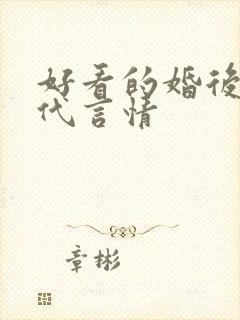 好看的婚後
代言情
章彬